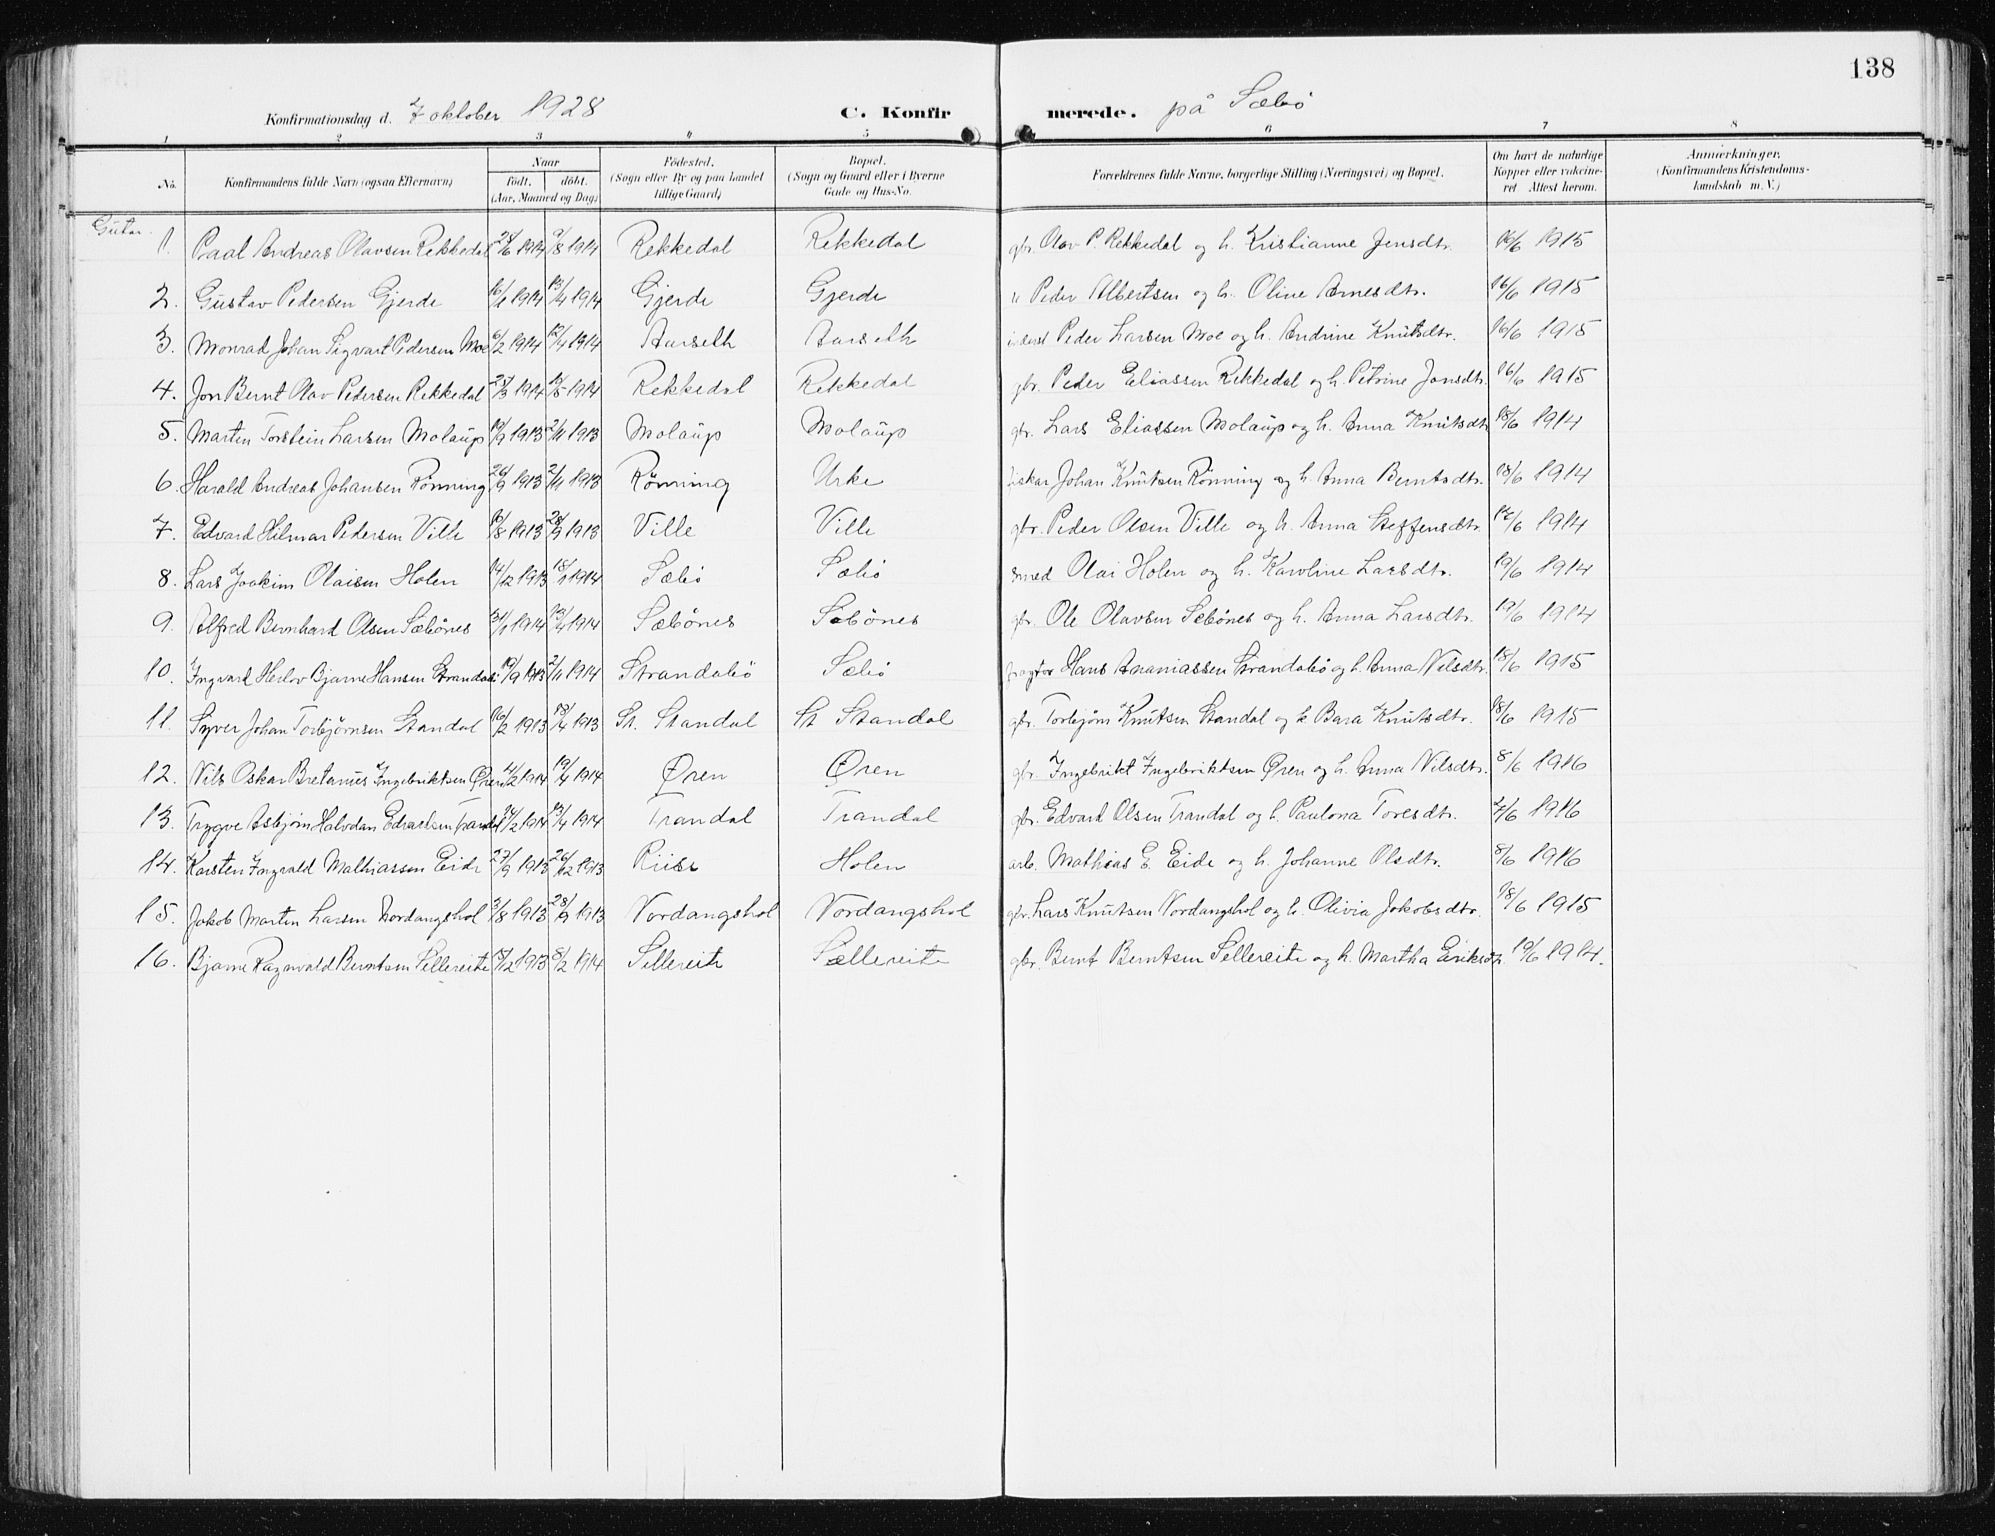 138
Konfirmationsdag d. 7 oktober 1928 C. Konfirmerede. på Sæbø
1 2 3 4 5 6 7 8
No. Konfirmandens fulde Navn (ogsaa Efternavn) Naar födt. döbt. (Aar, Maaned og Dag) Födested. (Sogn eller By og paa Landet tillige Gaard) Bopæl. (Sogn og Gaard eller i Byerne Gade og Hus-No. Forældrenes fulde Navne, borgerlige Stilling (Næringsvei) og Bopæl. Om havt de naturlige Kopper eller vakcineret Attest herom. Anmærkninger. (Konfirmandens Kristendomskundskab m. V.)
Gutar.
1. Paal Andreas Olavsen Rekkedal 25/6 1914 9/8 1914 Rekkedal Rekkedal gbr. Olav P. Rekkedal og h. Kristianne Jensdtr. 16/6 1915
2. Gustav Pedersen Gjerde 16/1 1914 13/4 1914 Gjerde Gjerde " Peder Albertsen og h. Oline Arnesdtr. 16/6 1915
3. Monrad Johan Sigvart Pedersen Moe 6/2 1914 12/4 1914 Aarseth Aarseth inderst Peder Larsen Moe og h. Andrine Knutsdtr. 16/6 1915
4. Jon Bernt Olav Pedersen Rekkedal 25/3 1914 1914 Rekkedal Rekkedal gbr. Peder Eliassen Rekkedal og h. Petrine Jonsdtr. 16/6 1915
5. Marten Torstein Larsen Molaup 19/9 1913 2/11 1913 Molaup Molaup gbr. Lars Eliassen Molaup og h. Anna Knutsdtr 18/6 1914
6. Harald Andreas Johansen Rønning 26/9 1913 2/11 1913 Rønning Urke fiskar Johan Knutsen Rønning og h. Anna Berntsdtr. 18/6 1914
7. Edvard Hilmar Pedersen Ville 16/8 1913 28/9 1913 Ville Ville gbr. Peder Olsen Ville og h. Anna Steffensdtr. 1914
8. Lars Joakim Olaisen Holen 14/12 1913 18/1 1914 Sæbø Sæbø smed Olai Holen og h. Karoline Larsdtr. 19/6 1914
9. Alfred Bernhard Olsen Sæbönes 31/1 1914 13/4 1914 Sæbönes Sæbönes gbr. Ole Olavsen Sæbönes og h. Anna Larsdtr. 19/6 1914
10. Ingvard Herlov Bjarne Hansen Strandabø 19/9 1913 2/11 1914 Strandabö Sæbö Hans Ananiassen Strandabö og h. Anna Nilsdtr. 18/6 1915
11. Syver Johan Torbjørnsen Standal 16/2 1913 13/4 1913 St. Standal St Standal gbr. Torbjørn Knutsen Standal og h Bara Knutsdtr. 18/6 1915
12. Nils Oskar Bretanus Ingebriktsen Øren 11/2 1914 19/4 1914 Øren Øren gbr. Ingebrikt Ingebriktsen Øren og h. Anna Nilsdtr. 8/6 1916
13. Trygve Asbjørn Halvdan Edvardsen Trandal 24/2 1914 13/4 1914 Trandal Trandal gbr. Edvard Olsen Trandal og h. Paulona Toresdtr. 7/6 1916
14. Karsten Ingvald Mathiassen Eide 27/9 1913 26/12 1913 Riise Holen arb. Mathias E. Eide og h. Johanne Olsdtr. 8/6 1916
15. Jakob Martin Larsen Nordangshol 3/8 1913 28/9 1913 Nordangshol Nordangshol gbr. Lars Knutsen Nordangshol og h. Olivia Jakobsdtr. 18/6 1915
16. Bjarne Ragnvald Berntsen Sellereite 1913 8/2 1914 Sellereite Sællereite gbr. Bernt Berntsen Sellereite og h. Martha Eriksdtr. 19/6 1914.